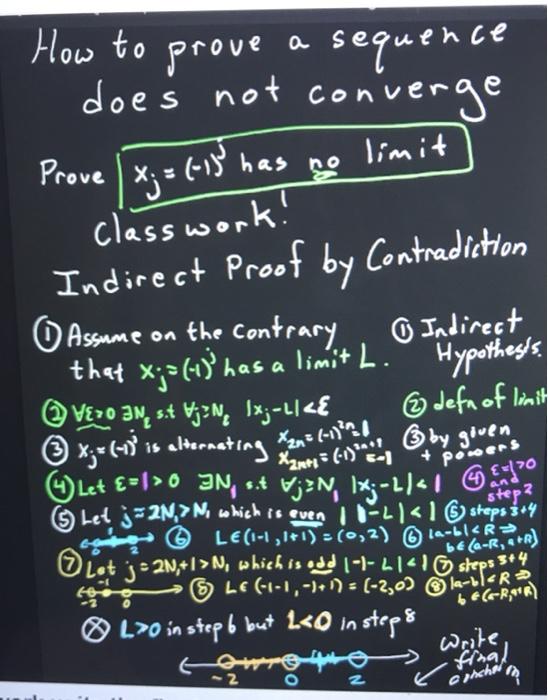 How to prove a sequence
does not converge
Prove x_j = (-1)^j has no limit
Classwork!
Indirect Proof by Contradiction
① Assume on the contrary ① Indirect
that x_j = (-1)^j has a limit L. Hypothesis.
② ∀ε>0 ∃N_ε s.t ∀j≥N_ε |x_j-L|<ε ② defn of limit
③ x_j = (-1)^j is alternating x_2n = (-1)^2n = 1 ③ by given
x_2n+1 = (-1)^2n+1 = -1 + powers
④ Let ε=1>0 ∃N_1 s.t ∀j≥N_1 |x_j-L|<1 ④ ε=1>0
and
step 2
⑤ Let j=2N_1>N_1 which is even |1-L|<1 ⑤ steps 3+4
0 2 ⑥ L∈(1-1,1+1)=(0,2) ⑥ |a-b|<R ⇒
b∈(a-R,a+R)
⑦ Let j=2N_1+1>N_1 which is odd |-1-L|<1 ⑦ steps 3+4
-2 -1 0 ⑧ L∈(-1-1,-1+1)=(-2,0) ⑧ |a-b|<R ⇒
b∈(a-R,a+R)
⊗ L>0 in step 6 but L<0 in step 8
-2 0 2
Write
final